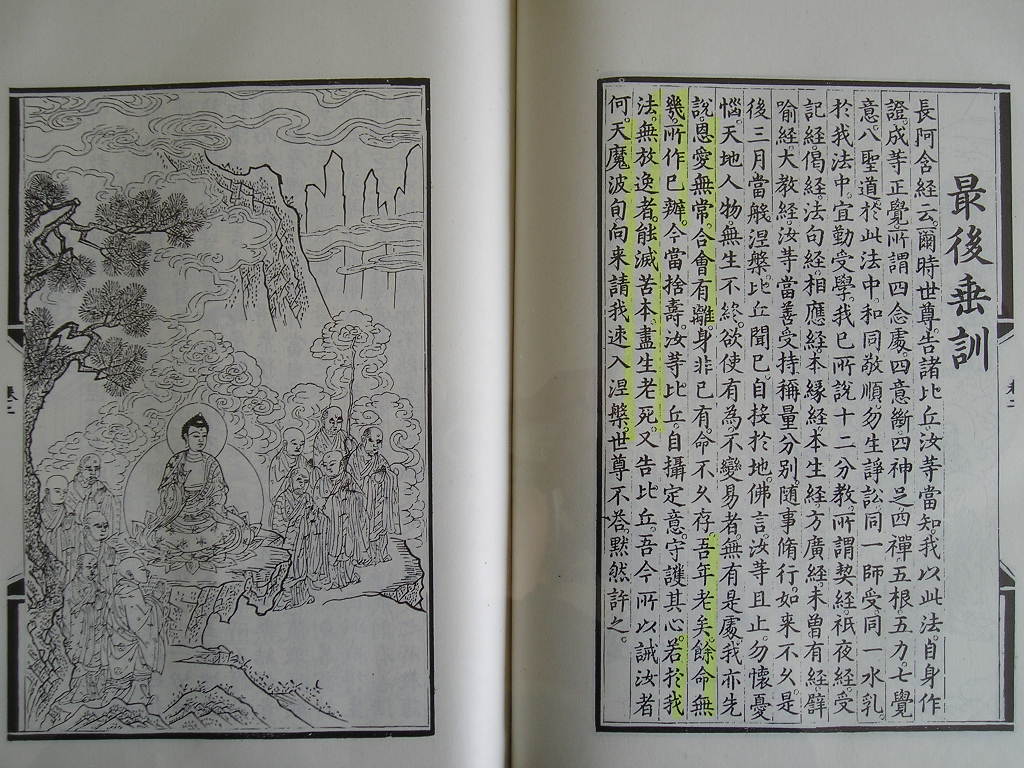 最後垂訓
長阿含經云。爾時世尊。告諸比丘。汝等當知。我以此法。自身作
證。成等正覺。所謂四念處。四意斷。四神足。四禪。五根。五力。七覺
意。八聖道。於此法中。和同敬順。勿生諍訟。同一師受。同一水乳。
於我法中。宜勤受學。我已所說十二分教。所謂契經。祇夜經。受
記經。偈經。法句經。相應經。本緣經。本生經。方廣經。未曾有經。譬
喻經。大教經。汝等當善受持。稱量分別。隨事脩行。如來不久。是
後三月。當般涅槃。比丘聞已。自投於地。佛言。汝等且止。勿懷憂
惱。天地人物。無生不終。欲使有為。不變易者。無有是處。我亦先
說。恩愛無常。合會有離。身非已有。命不久存。吾年老矣。餘命無
幾。所作已辦。今當捨壽。汝等比丘。自攝定意。守護其心。若於我
法。無放逸者。能滅苦本。盡生老死。又告比丘。吾今所以誡汝者
何。天魔波旬。向來請我。速入涅槃。世尊不答。默然許之。
卷二